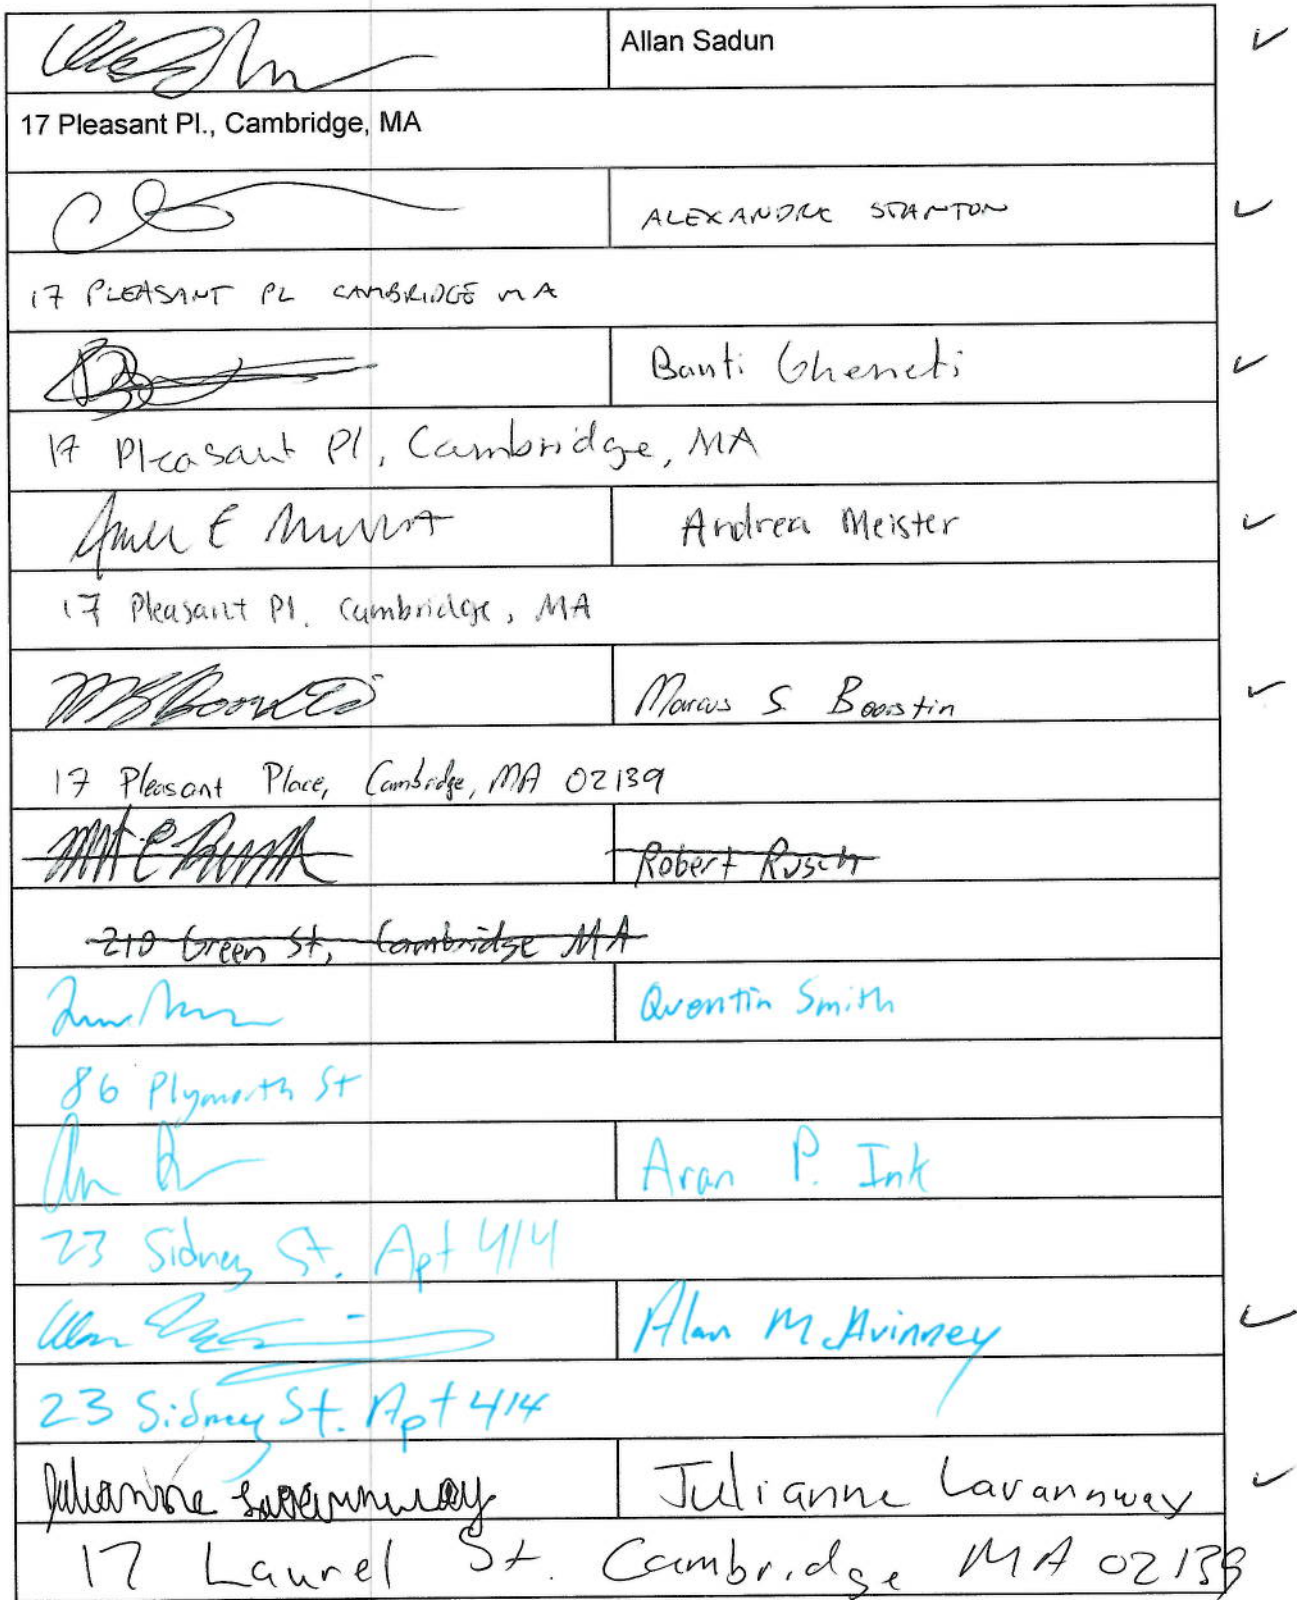 Allan Sadun ✓
17 Pleasant Pl., Cambridge, MA
ALEXANDRE STANTON ✓
17 PLEASANT PL CAMBRIDGE MA
Banti Gheneti ✓
17 Pleasant Pl, Cambridge, MA
Andrea Meister ✓
17 Pleasant Pl. Cambridge, MA
Marcus S. Boorstin ✓
17 Pleasant Place, Cambridge, MA 02139
Robert Rusch
210 Green St, Cambridge MA
Quentin Smith
86 Plymouth St
Aran P. Ink
23 Sidney St. Apt 414
Alan McAvinney ✓
23 Sidney St. Apt 414
Julianne Lavannway Julianne Lavannway ✓
17 Laurel St. Cambridge MA 02139